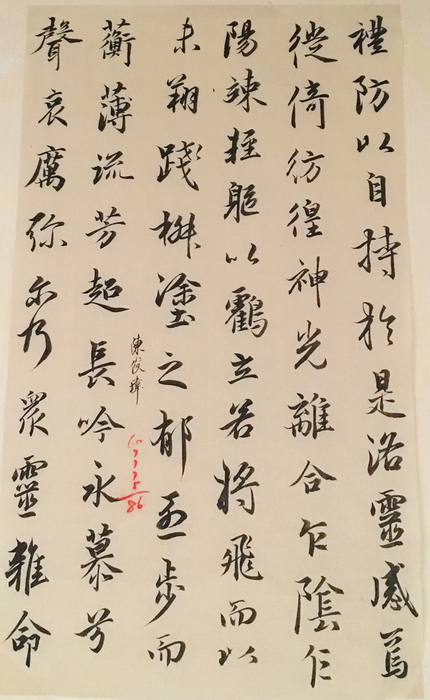 禮防以自持於是洛靈感焉
徙倚彷徨神光離合乍陰乍
陽竦輕軀以鶴立若將飛而以
未翔踐椒塗之郁烈步而
蘅薄流芳超長吟永慕兮
聲哀厲弥尓乃眾靈雜命
陳俊瑋
60
7
7
7
5
86